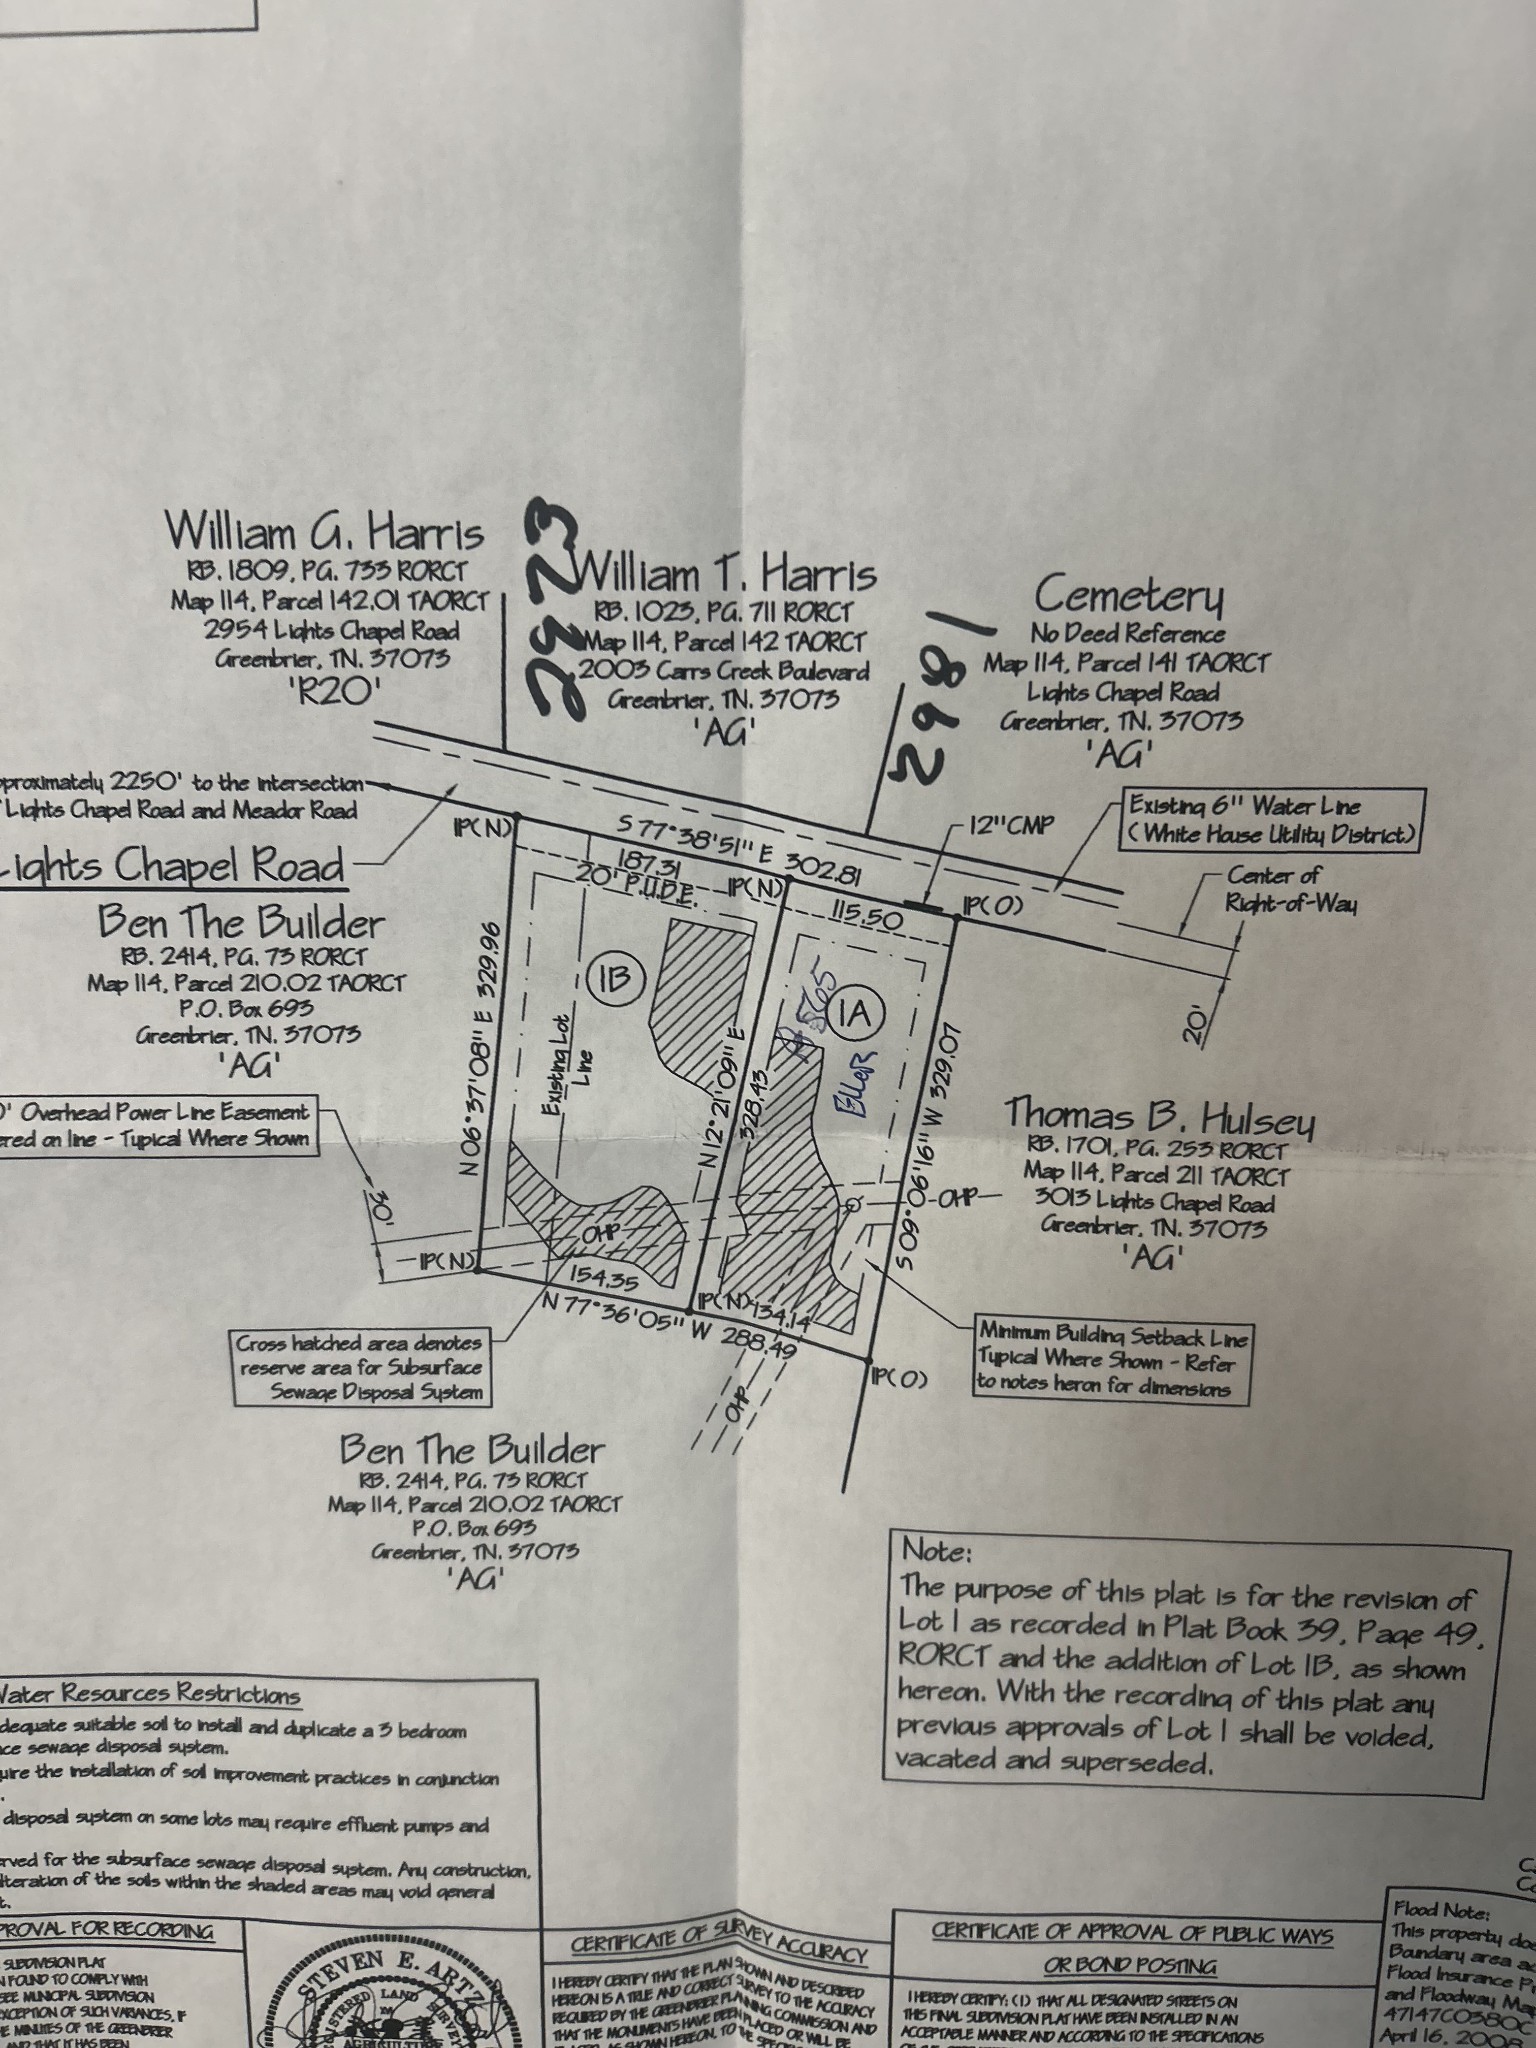 William G. Harris
RB. 1809, PG. 733 RORCT
Map 114, Parcel 142.01 TAORCT
2954 Lights Chapel Road
Greenbrier, TN. 37073
'R20'
2973
William T. Harris
RB. 1023, PG. 711 RORCT
Map 114, Parcel 142 TAORCT
2003 Carrs Creek Boulevard
Greenbrier, TN. 37073
'AG'
2981
Cemetery
No Deed Reference
Map 114, Parcel 141 TAORCT
Lights Chapel Road
Greenbrier, TN. 37073
'AG'
pproximately 2250' to the intersection
Lights Chapel Road and Meador Road
Lights Chapel Road
IP(N)
S 77°38'51" E 302.81
187.31
20' P.U.D.E.
IP(N)
115.50
12"CMP
IP(O)
Existing 6" Water Line
(White House Utility District)
Center of
Right-of-Way
20'
Ben The Builder
RB. 2414, PG. 73 RORCT
Map 114, Parcel 210.02 TAORCT
P.O. Box 693
Greenbrier, TN. 37073
'AG'
N 06°37'08" E 329.96
1B
Existing Lot
Line
N 12°21'09" E
328.43
1A
565
S 09°06'16" W 329.07
0' Overhead Power Line Easement
ered on line - Typical Where Shown
30'
IP(N)
OHP
OHP
Thomas B. Hulsey
RB. 1701, PG. 253 RORCT
Map 114, Parcel 211 TAORCT
3013 Lights Chapel Road
Greenbrier, TN. 37073
'AG'
154.35
IP(N)
134.14
N 77°36'05" W 288.49
IP(O)
OHP
Cross hatched area denotes
reserve area for Subsurface
Sewage Disposal System
Minimum Building Setback Line
Typical Where Shown - Refer
to notes heron for dimensions
Ben The Builder
RB. 2414, PG. 73 RORCT
Map 114, Parcel 210.02 TAORCT
P.O. Box 693
Greenbrier, TN. 37073
'AG'
Note:
The purpose of this plat is for the revision of
Lot 1 as recorded in Plat Book 39, Page 49,
RORCT and the addition of Lot 1B, as shown
hereon. With the recording of this plat any
previous approvals of Lot 1 shall be voided,
vacated and superseded.
Water Resources Restrictions
dequate suitable soil to install and duplicate a 3 bedroom
ce sewage disposal system.
uire the installation of soil improvement practices in conjunction
disposal system on some lots may require effluent pumps and
rved for the subsurface sewage disposal system. Any construction,
lteration of the soils within the shaded areas may void general
t.
PROVAL FOR RECORDING
SUBDIVISION PLAT
N FOUND TO COMPLY WITH
SEE MUNICIPAL SUBDIVISION
EXCEPTION OF SUCH VARIANCES, IF
E MINUTES OF THE GREENBRIER
AND THAT IT HAS BEEN
STEVEN E. ARTZ
REGISTERED LAND SURVEYOR
AGRICULTURE
CERTIFICATE OF SURVEY ACCURACY
I HEREBY CERTIFY THAT THE PLAN SHOWN AND DESCRIBED
HEREON IS A TRUE AND CORRECT SURVEY TO THE ACCURACY
REQUIRED BY THE GREENBRIER PLANNING COMMISSION AND
THAT THE MONUMENTS HAVE BEEN PLACED OR WILL BE
CERTIFICATE OF APPROVAL OF PUBLIC WAYS
OR BOND POSTING
I HEREBY CERTIFY: (1) THAT ALL DESIGNATED STREETS ON
THIS FINAL SUBDIVISION PLAT HAVE BEEN INSTALLED IN AN
ACCEPTABLE MANNER AND ACCORDING TO THE SPECIFICATIONS
Flood Note:
This property doe
Boundary area a
Flood Insurance
and Floodway Ma
47147C0380C
April 16, 2008